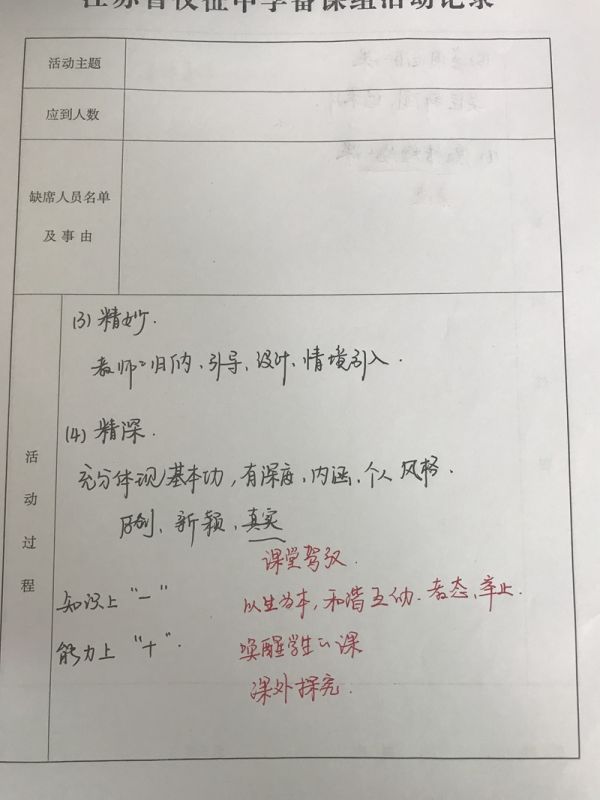 江苏省仪征中学备课组活动记录
活动主题
应到人数
缺席人员名单
及事由
活动过程
(3) 精妙.
教师:归纳、引导、设计、情境引入.
(4) 精深.
充分体现基本功,有深度、内涵、个人风格.
原创、新颖、真实
课堂驾驭.
知识上“一”
以生为本,和谐互动.教态、举止.
能力上“十”.
唤醒学生心课
课外探究.